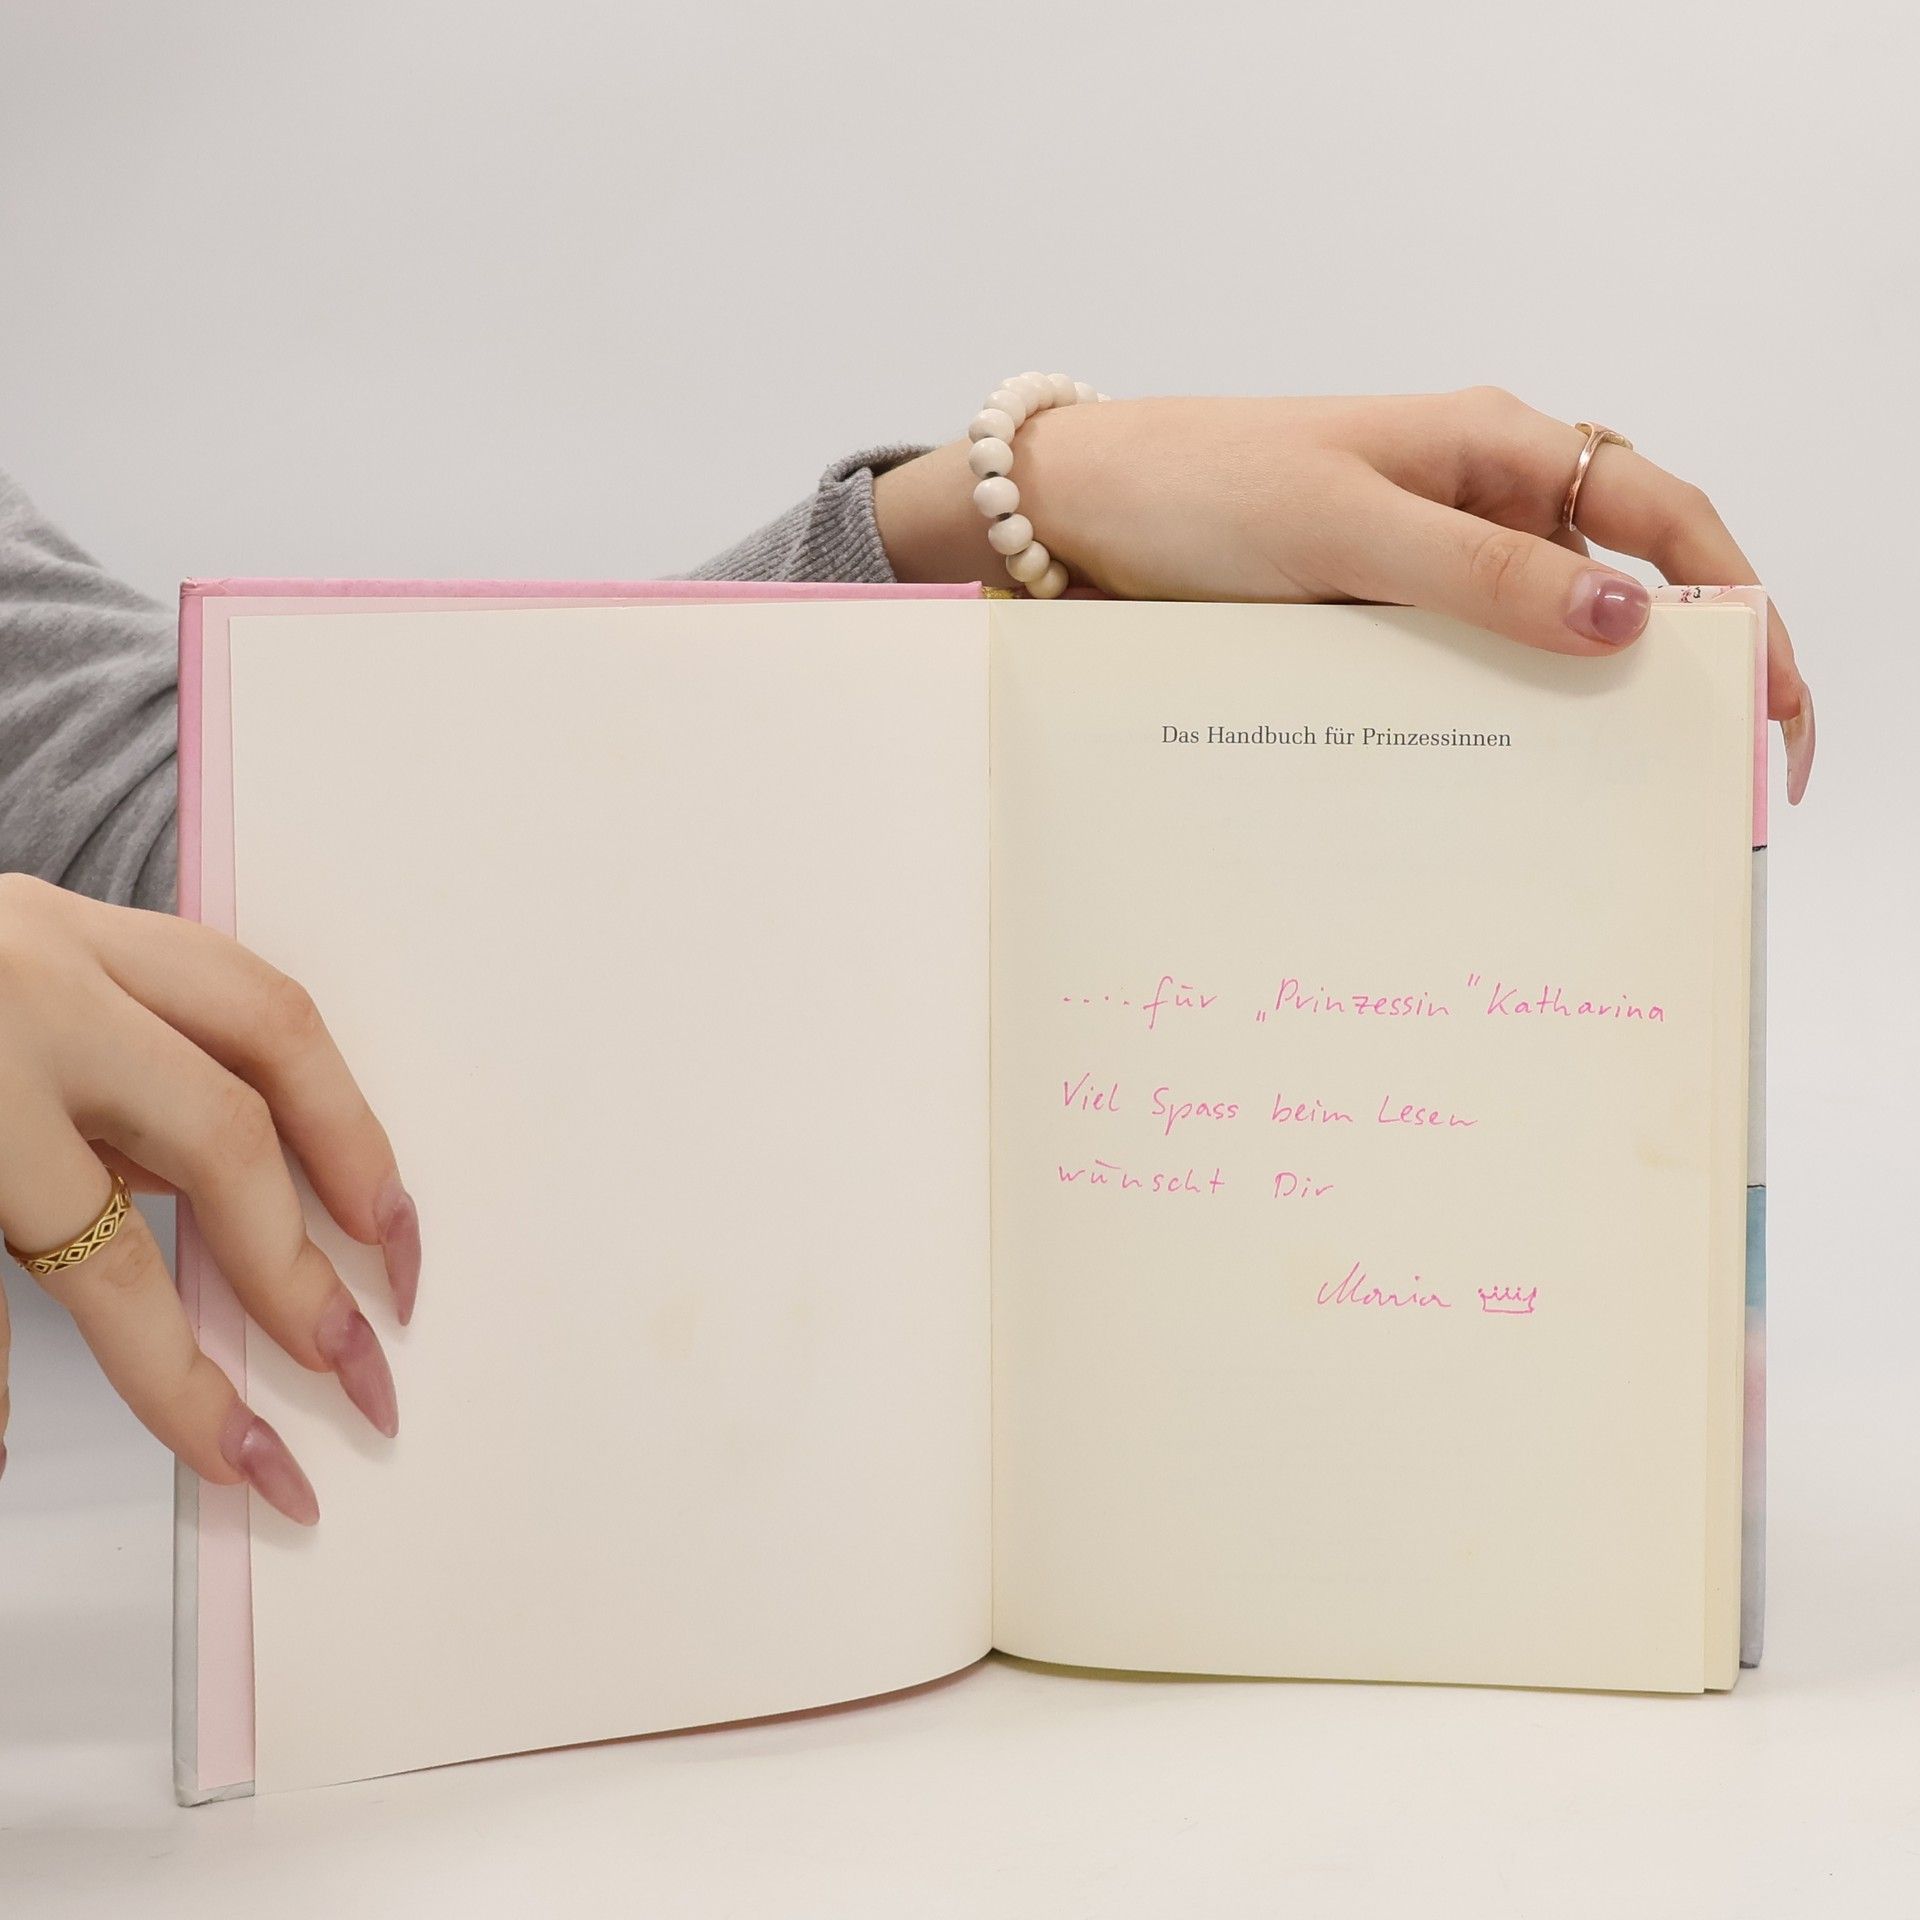 Das Handbuch für Prinzessinnen
.... für „Prinzessin" Katharina
Viel Spass beim Lesen
wünscht Dir
Maria